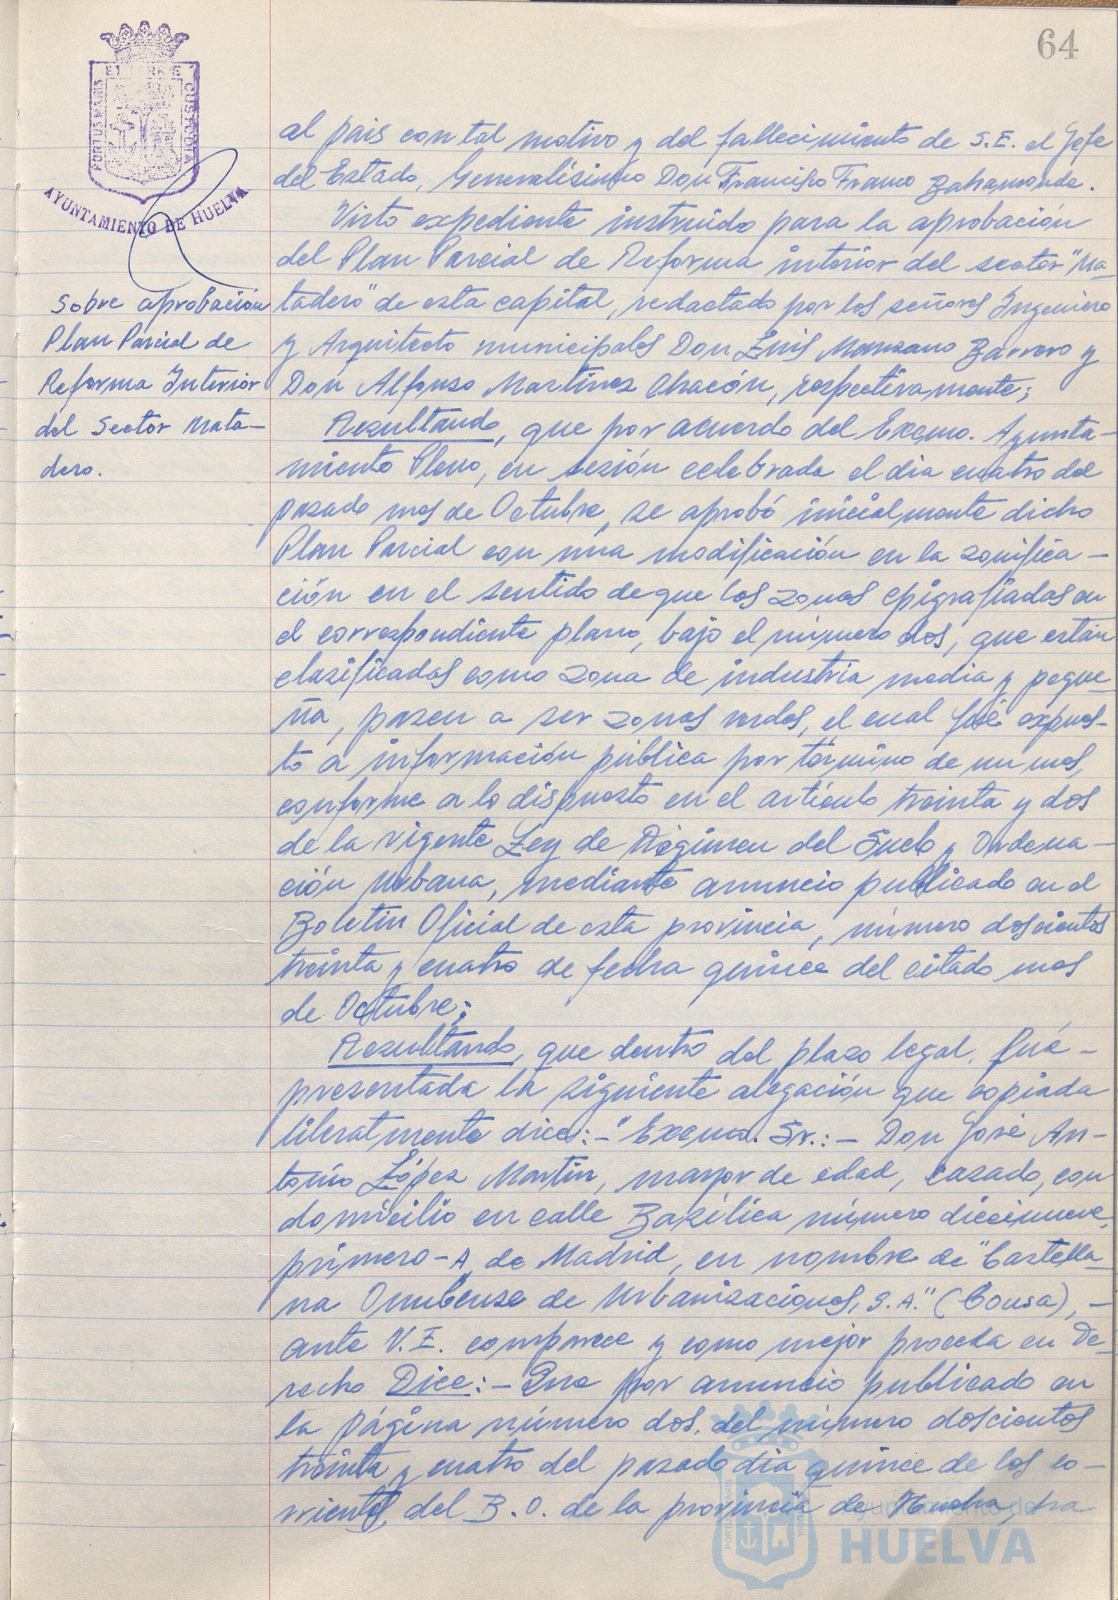 64
PORTUS MARIS
ET TERRE
CUSTODIA
AYUNTAMIENTO DE HUELVA
al pais con tal motivo y del fallecimiento de S.E. el Jefe
del Estado, Generalisimo Don Francisco Franco Bahamonde.
Visto expediente instruido para la aprobación
del Plan Parcial de Reforma interior del sector "Ma-
tadero" de esta capital, redactado por los señores Ingeniero
y Arquitecto municipales Don Luis Manzano Barrero y
Don Alfonso Martinez Chacón, respectivamente;
Sobre aprobación
Plan Parcial de
Reforma Interior
del Sector Mata-
dero.
Resultando, que por acuerdo del Excmo. Ayunta-
miento Pleno, en sesión celebrada el dia cuatro del
pasado mes de Octubre, se aprobó inicialmente dicho
Plan Parcial con una modificación en la zonifica-
ción en el sentido de que las zonas epigrafiadas en
el correspondiente plano, bajo el número dos, que están
clasificadas como zona de industria media y peque-
ña, pasen a ser zonas verdes, el cual fué expues-
to a información pública por término de un mes,
conforme a lo dispuesto en el artículo treinta y dos
de la vigente Ley de Régimen del Suelo y Ordena-
ción Urbana, mediante anuncio publicado en el
Boletin Oficial de esta provincia, número doscientos
treinta y cuatro de fecha quince del citado mes
de Octubre;
Resultando, que dentro del plazo legal, fué-
presentada la siguiente alegación que copiada
literalmente dice:-"Excmo. Sr.:- Don José An-
tonio López Martin, mayor de edad, casado, con
domicilio en calle Basílica número diecinueve,
primero-A, de Madrid, en nombre de "Castella-
na Onubense de Urbanizaciones, S.A." (Cousa),-
ante V.E. comparece y como mejor proceda en De-
recho Dice:- Que por anuncio publicado en
la página número dos, del número doscientos
treinta y cuatro del pasado dia quince de los co-
rrientes, del B.O. de la provincia de Huelva, ha
Ayuntamiento de
HUELVA